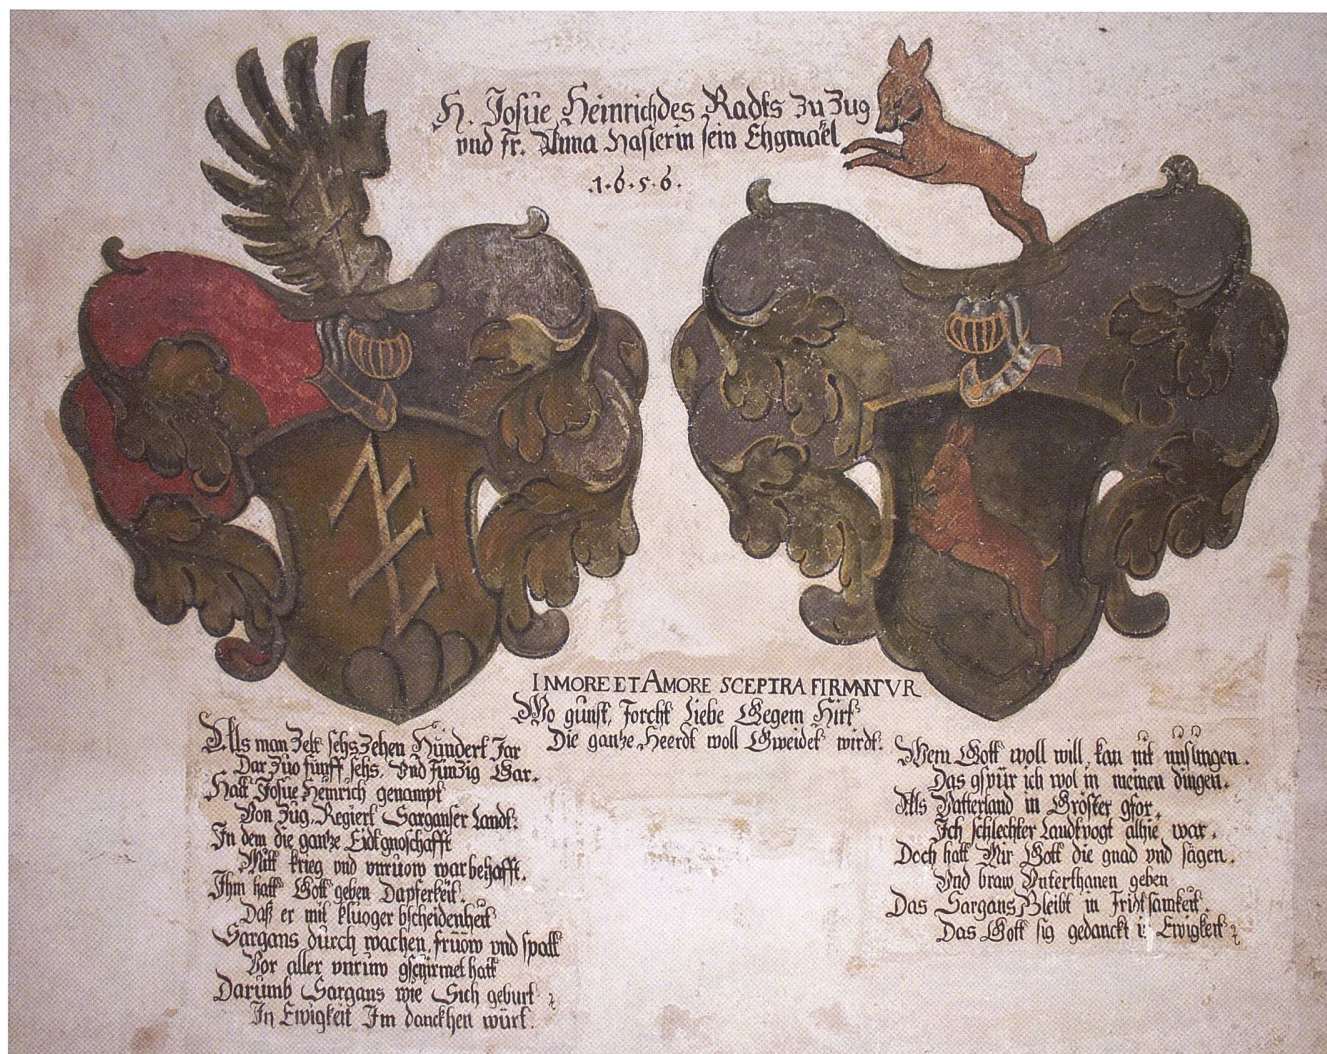 H. Josüe Heinrich des Radts Zu Zug
vnd Fr. Anna Haslerin sein Ehgmaēl
.1.6.5.6.
INMORE ET AMORE SCEPTRA FIRMANTVR
Wo günst, Forcht Liebe Gegem Hirt
Die gantze Heerdt woll Gweidet wirdt.
Als man Zelt sehs Zehen Hündert Jar
Dar Züo fünff sehs, Vnd Fünzig Gar.
Hatt Josüe Heinrich genampt
Von Züg, Regiert Sarganser Landt.
In dem die gantze Eidtgnoschafft
Mitt krieg vnd vnrüow war behafft.
Ihm hatt Gott geben Dapferkeit.
Daß er mit klüoger bscheidenheit
Sargans dürch wachen, früow vnd spatt
Vor aller vnrüw gschirmet hatt
Darümb Sargans wie Sich gebürt
In Ewigkeit Im danckhen würt.
Wem Gott woll will, kan nit mislingen.
Das gspür ich wol in meinen dingen.
Als Vatterland in Gröster gfor,
Ich schlechter Landtvogt alhie war.
Doch hatt Mir Gott die gnad vnd sägen.
Vnd braw Vnterthanen geben
Das Sargans Bleibt in Fridtsamkeit.
Das Gott sig gedanckt in Ewigkeit